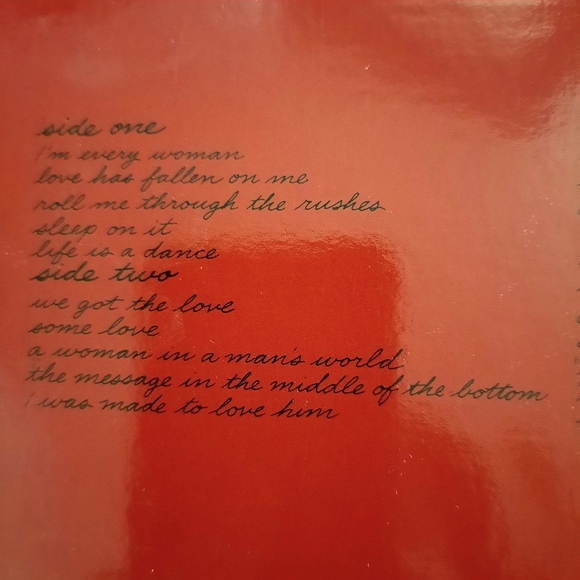 side one
I'm every woman
love has fallen on me
roll me through the rushes
sleep on it
life is a dance
side two
we got the love
some love
a woman in a man's world
the message in the middle of the bottom
I was made to love him